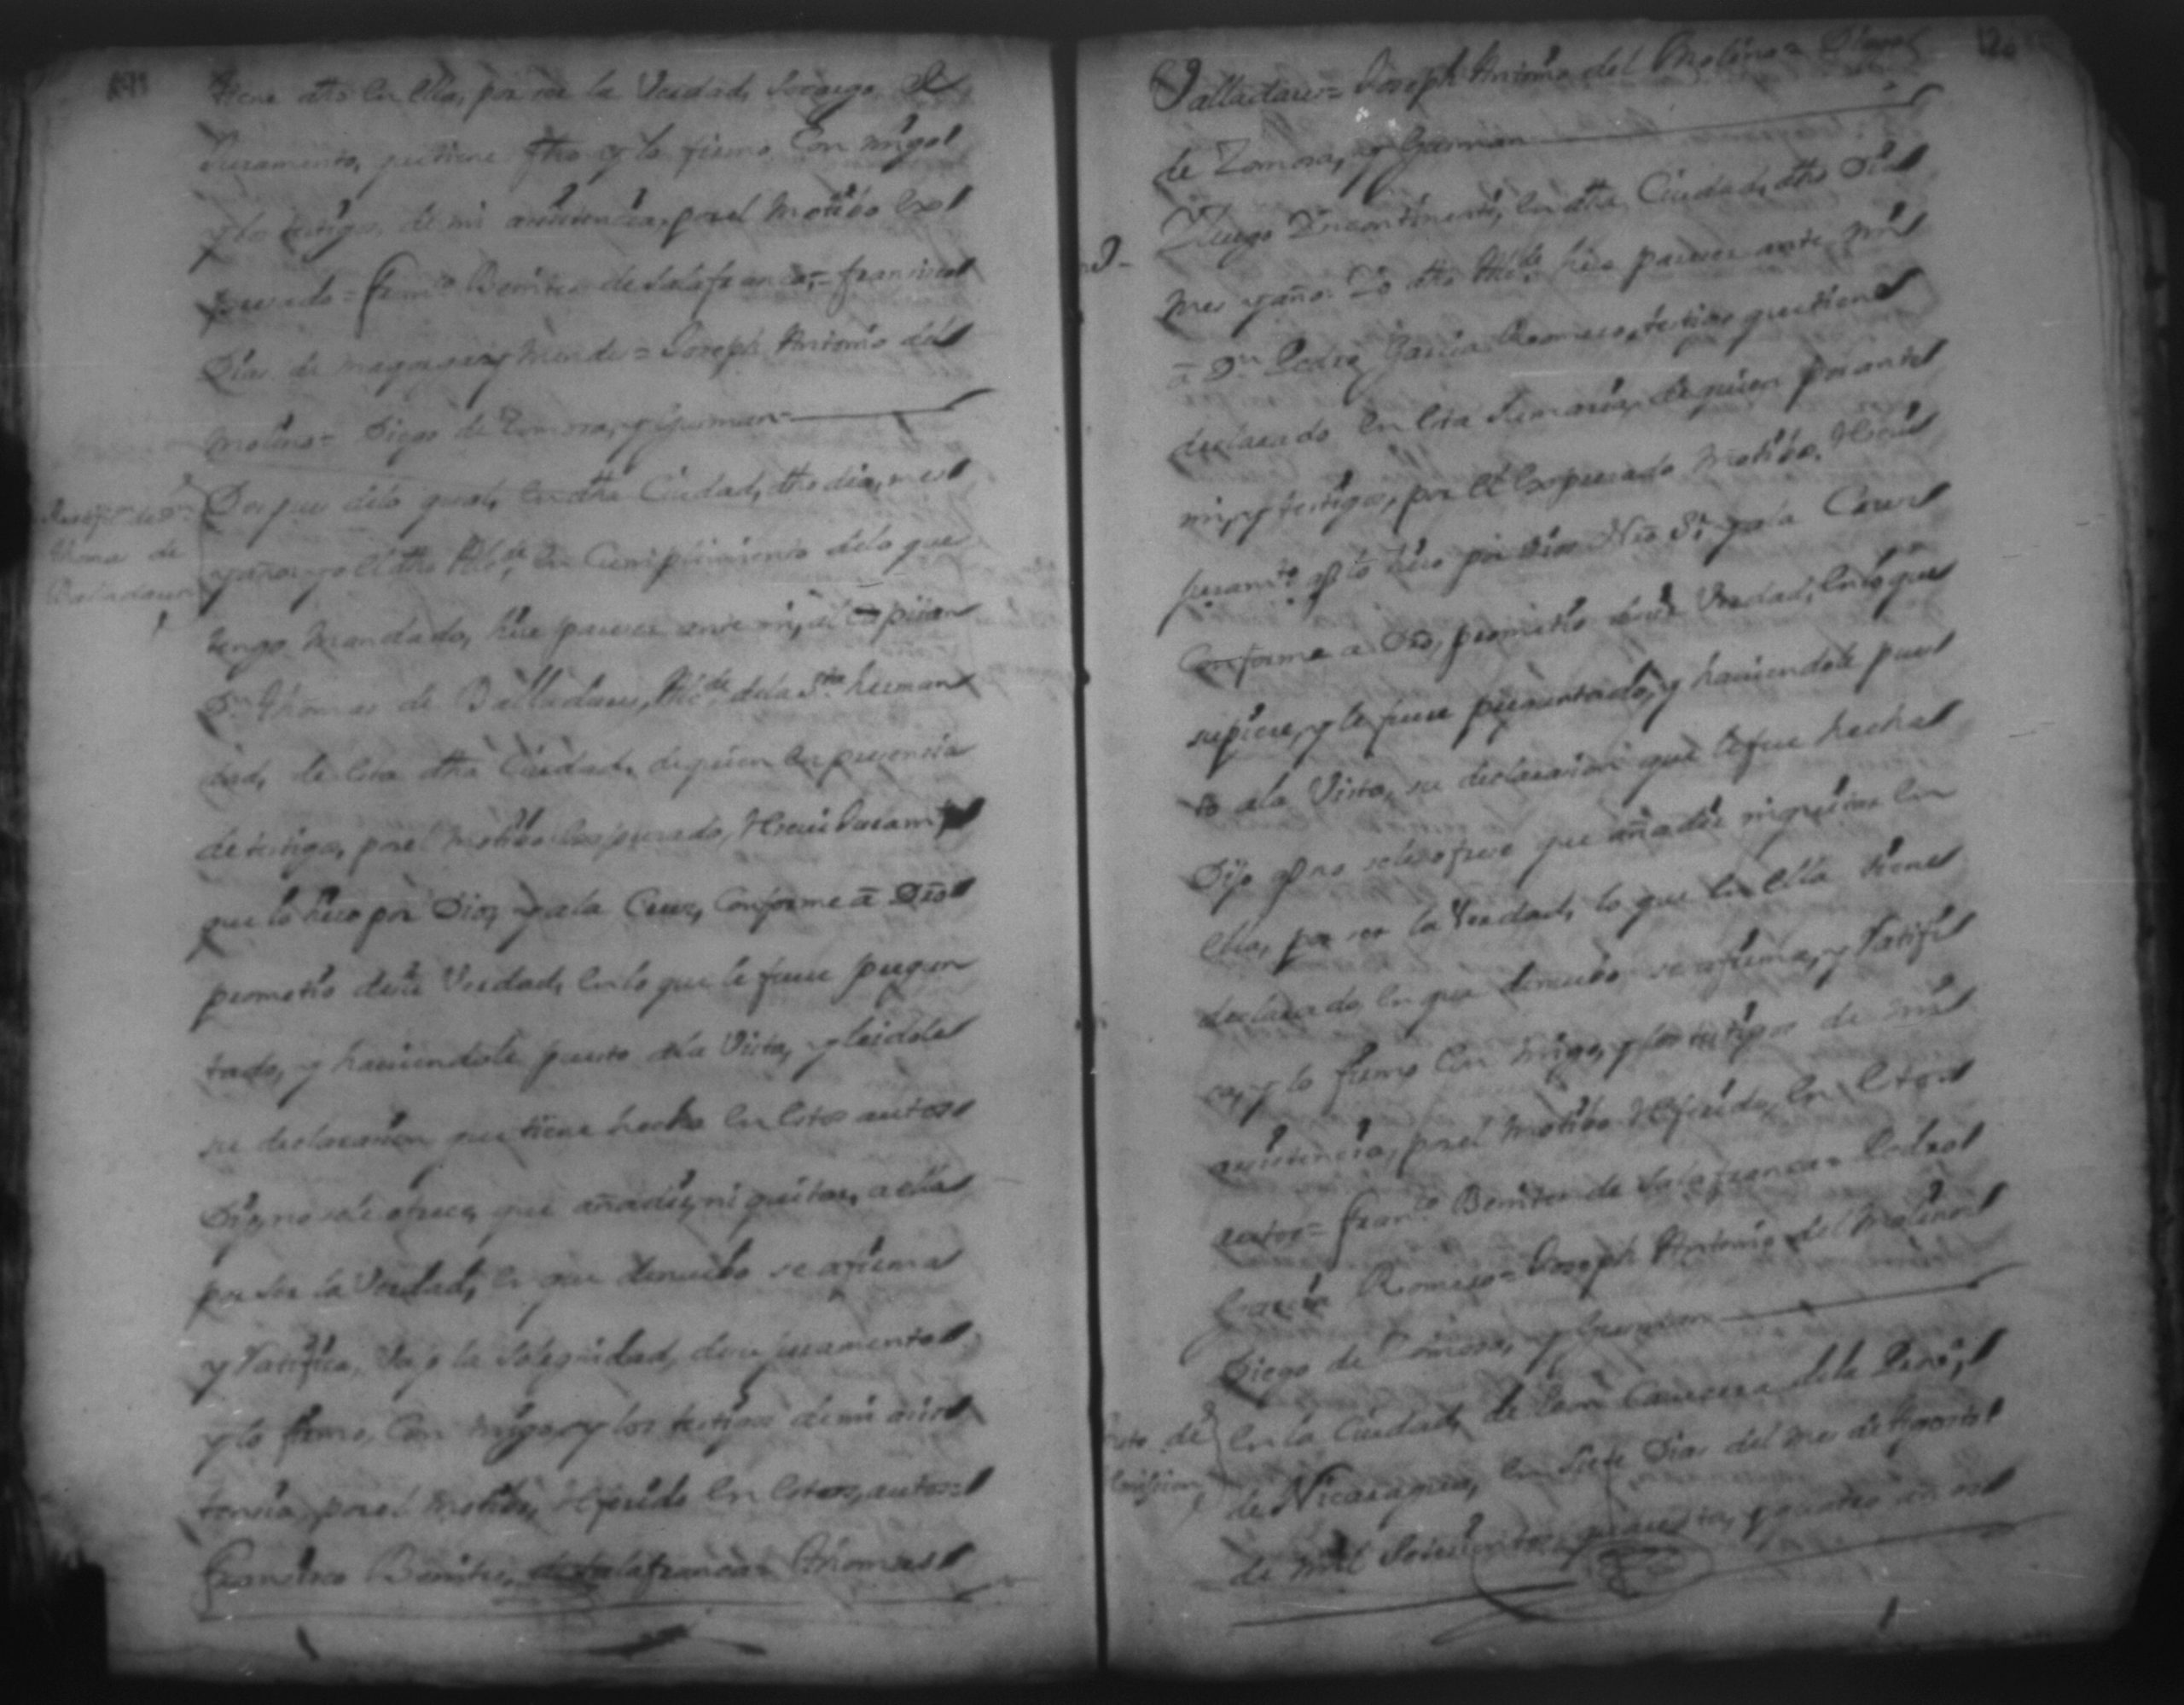 tiene dho en ella, por ser la Verdad, so cargo del
Juramento, que tiene fho y lo firmo Con migo
y los testigos, de mi asistencia, por el motibo ex
presado = Franco Benites de Salafranca = Francisco
Dias de mayorga y Mendes = Joseph Antonio del
Molino = Diego de Zamora, y Gusman =
Despues delo qual, en dha Ciudad, dho dia, mes
y año yo el dho Alcde en Cumplimiento delo que
tengo Mandado, hise pareser ante mi, al Capitan
Dn Thomas de Balladares, Alcde dela Sta herman
dad, de esta dha Ciudad, de quien en presencia
de testigos, por el motibo expresado, Resevi Juramto
que lo hizo por Dios, y a la Cruz, Conforme a Dro
prometio desir Verdad, en lo que le fuere pregun
tado, y haviendole puesto a la Vista, y leidole
su declarasion que tiene hecha en estos autos
Dijo, no se le ofrece, que añadir, ni quitar, a ella
por ser la Verdad, en que denuebo se afirma
y Ratifica, Vajo la Solegnidad, de su juramento
y lo firmo, Con migo, y los testigos de mi asis
tensia, por el motibo, Referido en estos, autos =
Francisco Benites, de Salafranca = Thomas
de
Thomas de
Balladares
120
Valladares = Joseph Antonio del Molino = Diego
de Zamora, y Gusman
Luego Yncontinenti, en dha Ciudad, dho Dia
mes y año. Yo dho Alcde hise pareser ante mi
a Dn Pedro Garcia Romero, testigo que tiene
declarado en esta Sumaria, de quien por ante
mi, y testigos, por el expresado Motibo, Resevi
juramto q lo hizo por Dios Nro Sr y a la Cruz
Conforme a Dro, prometio desir Verdad, en lo que
supiere, y le fuere preguntado, y haviendole pues
to a la Vista, su declarasion que le fue hecha
Dijo q no se le ofrece que añadir ni quitar en
ella, por ser la Verdad, lo que en ella tiene
declarado, en que denuebo se afirma, y Ratifi
ca, y lo firmo Con migo, y los testigos de mi
asistencia, por el motibo Referido, en estos
autos = Franco Benites de Salafranca = Pedro
Garcia Romero = Joseph Antonio del Molino =
Diego de Zamora, y Gusman
Auto de
En la Ciudad, de Leon Cavecera dela Prova
de Nicaragua, en siete Dias del mes de Agosto
de mil Setesientos, quarenta, y quatro años